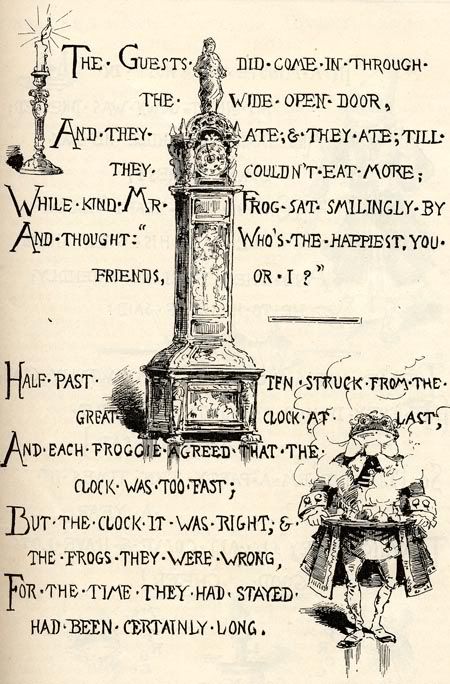 The · Guests · did · come · in · through ·
the · wide · open · door,
And · they · ate; & · they · ate; till ·
they · couldn't · eat · more;
While · kind · Mr · Frog · sat · smilingly · by
And · thought: "Who's · the · happiest, you ·
friends, or · I?"
Half · past · ten · struck · from · the ·
great · clock · at · last,
And · each · froggie · agreed · that · the ·
clock · was · too · fast;
But · the · clock · it · was · right; & ·
the · frogs · they · were · wrong,
For · the · time · they · had · stayed ·
had · been · certainly · long.